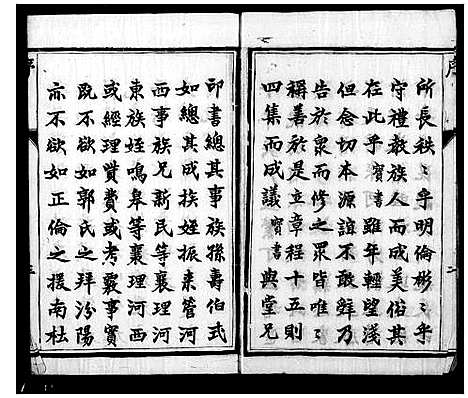 所長秩〻乎明倫彬〻乎
守禮教族人而成美俗其
在此乎寳書雖年輕望淺
但念切本源誼不敢辭乃
告於衆而修之衆皆唯〻
稱善於是立章程十五則
四集而成議寳書與堂兄
印書總其事族孫壽伯式
如總其成族姪振泰管河
西事族兄新民等襄理河
東族姪鳴皋等襄理河西
或經理貲費或考覈事實
既不欲如郭氏之拜汾陽
亦不欲如正倫之援南杜
序
序
三